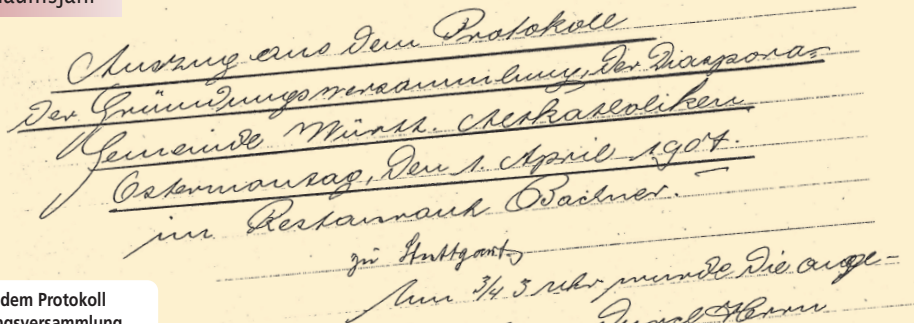 aumsjahr
Auszug aus dem Protokoll
der Gründungsversammlung, der Diaspora-
Gemeinde Württ. Altkatholiken
Ostermontag, den 1. April 1907.
im Restaurant Bachner.
zu Stuttgart
Um 3/4 3 Uhr wurde die ange-
durch Herrn
dem Protokoll
ngsversammlung